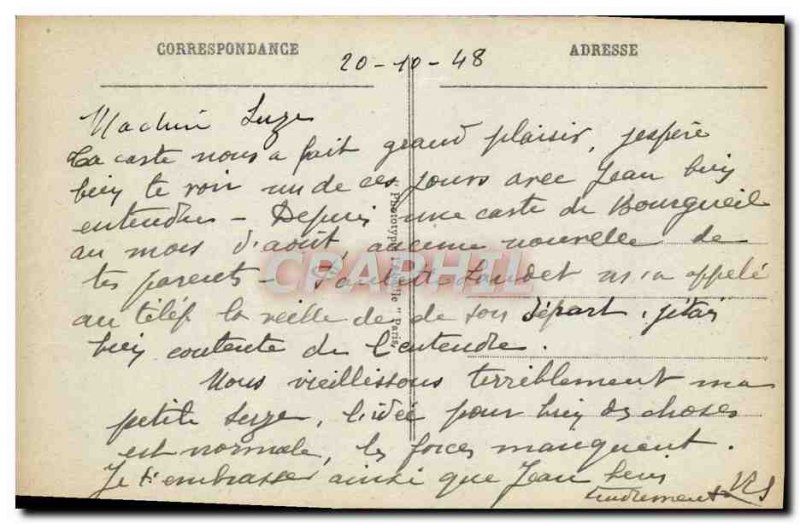 CORRESPONDANCE
ADRESSE
20-10-48
Ma chère Suze
Ta carte nous a fait grand plaisir, j'espère
bien te voir un de ces jours avec Jean bien
entendu - Depuis une carte de Bourgueil
au mois d'août, aucune nouvelle de
tes parents - Paulette m'a appelé
au téléf la veille de de son départ, j'étais
bien contente de l'entendre.
Nous vieillissons terriblement ma
petite Suze, l'idée pour bien des choses
est normale, les forces manquent.
Je t'embrasse ainsi que Jean bien
tendrement
"Phototypie "Paris
CRAPHIL